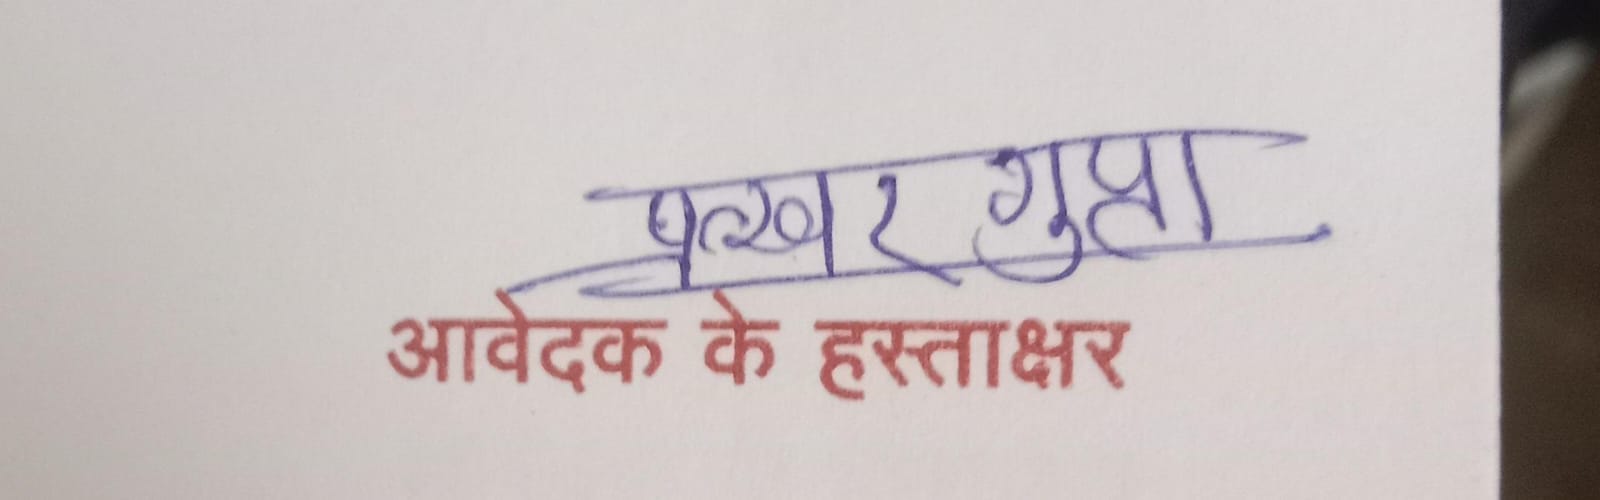 प्रखर गुप्ता
आवेदक के हस्ताक्षर